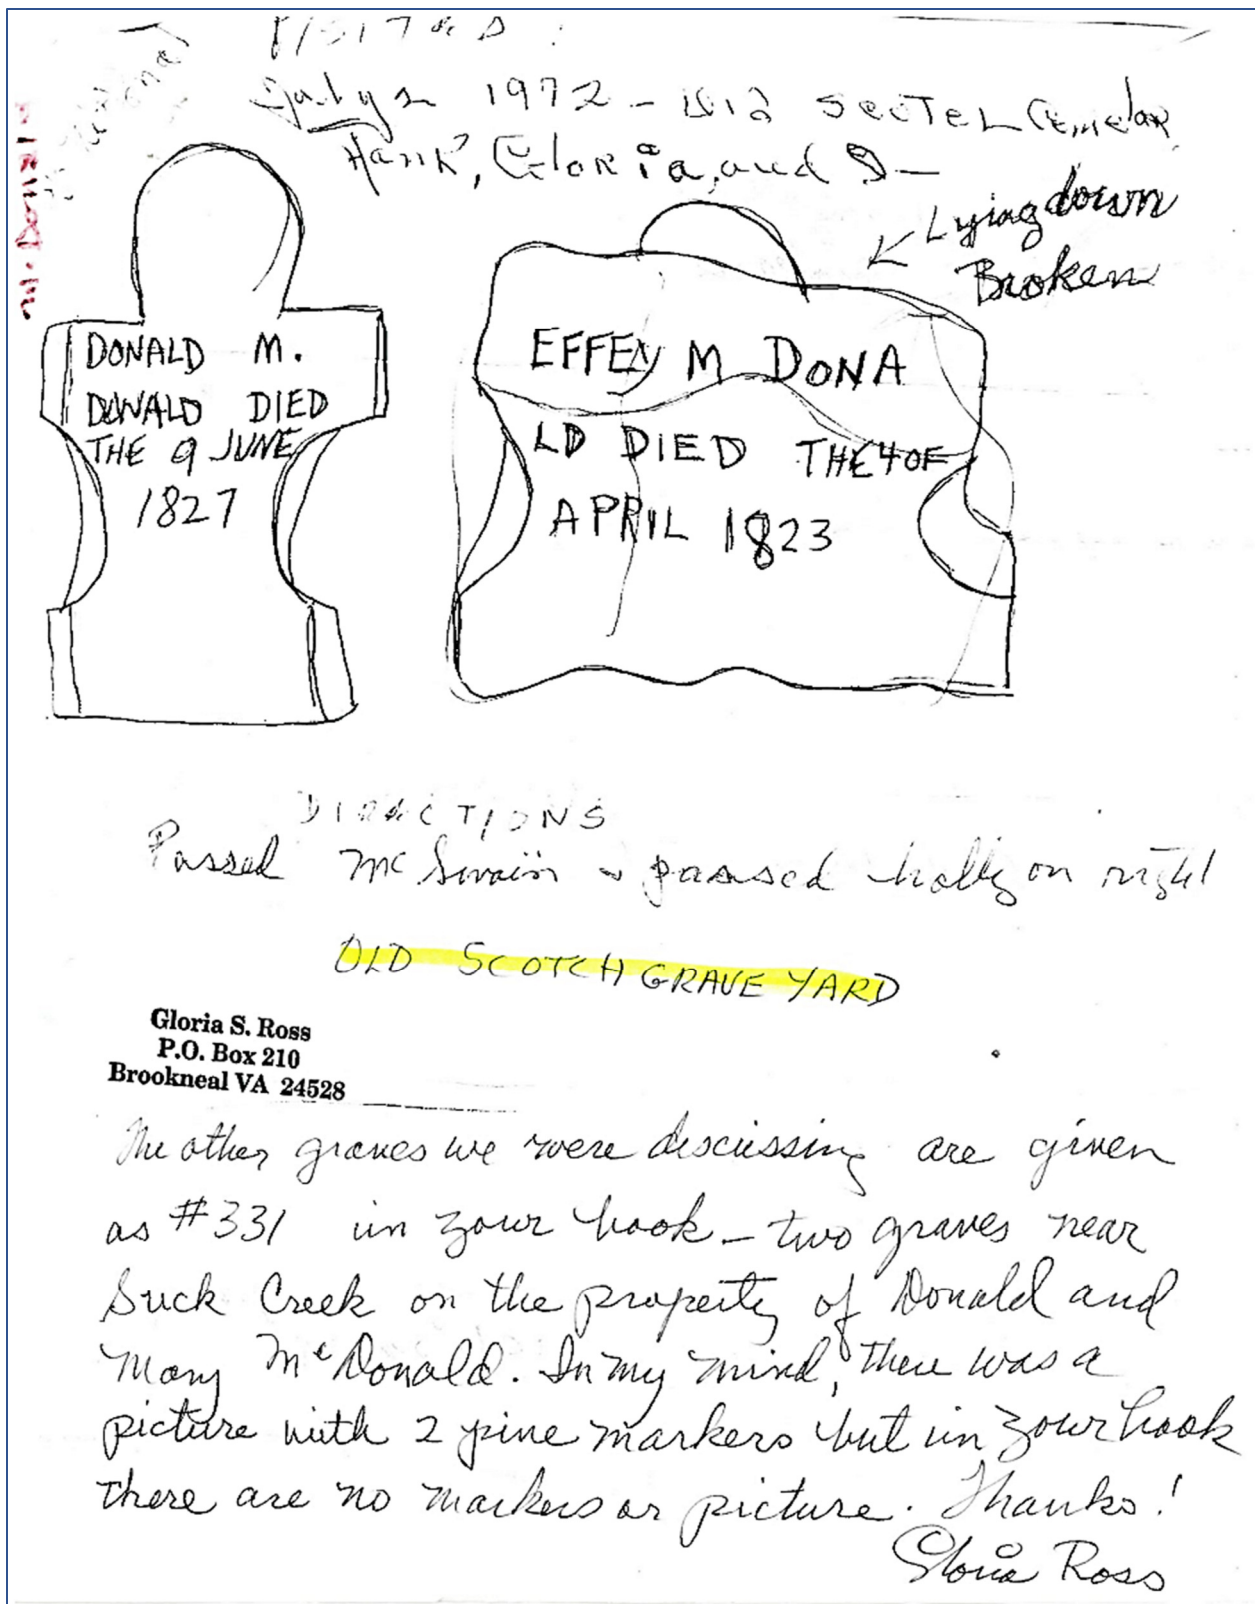 VISITED:
July 2 1972 – Old Cemetar
Hank, Gloria, and I –
Lying down
Broken
McDonald
DONALD M.
DONALD DIED
THE 9 JUNE
1827
EFFEY M DONA
LD DIED THE 4 OF
APRIL 1823
DIRECTIONS
Passed McSwain passed holly on right
OLD SCOTCH GRAVE YARD
Gloria S. Ross
P.O. Box 210
Brookneal VA 24528
The other graves we were discussing are given
as #331 in your book – two graves near
Suck Creek on the property of Donald and
Mary McDonald. In my mind, there was a
picture with 2 pine markers but in your book
there are no markers or picture. Thanks!
Gloria Ross